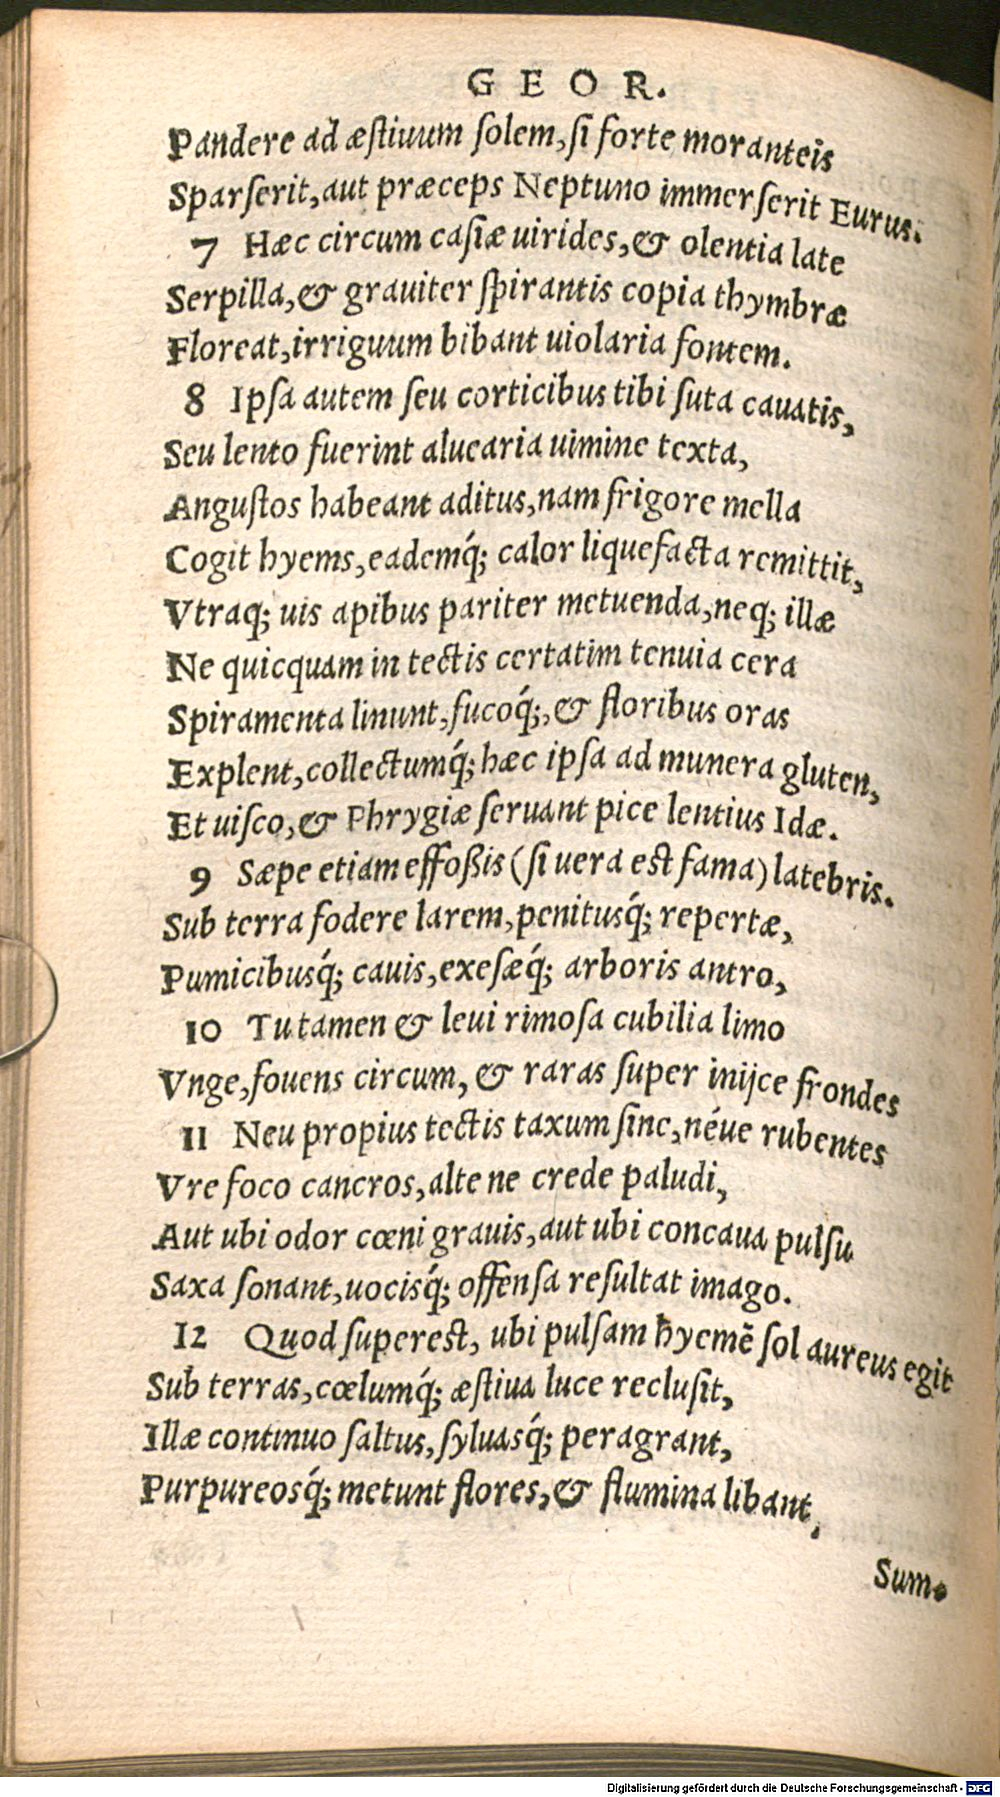 GEOR.
Pandere ad æſtiuum ſolem, ſi forte moranteis
Sparſerit, aut præceps Neptuno immerſerit Eurus.
7 Hæc circum caſiæ uirides, & olentia late
Serpilla, & grauiter ſpirantis copia thymbræ
Floreat, irriguum bibant uiolaria fontem.
8 Ipſa autem ſeu corticibus tibi ſuta cauatis,
Seu lento fuerint aluearia uimine texta,
Anguſtos habeant aditus, nam frigore mella
Cogit hyems, eademq́; calor liquefacta remittit,
Vtraq; uis apibus pariter metuenda, neq; illæ
Ne quicquam in tectis certatim tenuia cera
Spiramenta linunt, fucoq́;, & floribus oras
Explent, collectumq́; hæc ipſa ad munera gluten,
Et uiſco, & Phrygiæ ſeruant pice lentius Idæ.
9 Sæpe etiam effoßis (ſi uera eſt fama) latebris.
Sub terra fodere larem, penitusq́; repertæ,
Pumicibusq́; cauis, exeſæq́; arboris antro,
10 Tu tamen & leui rimoſa cubilia limo
Vnge, fouens circum, & raras ſuper inijce frondes
11 Neu propius tectis taxum ſine, néue rubentes
Vre foco cancros, alte ne crede paludi,
Aut ubi odor cœni grauis, aut ubi concaua pulſu
Saxa ſonant, uocisq́; offenſa reſultat imago.
12 Quod ſupereſt, ubi pulſam hyemē ſol aureus egit
Sub terras, cœlumq́; æſtiua luce recluſit,
Illæ continuo ſaltus, ſyluasq́; peragrant,
Purpureosq́; metunt flores, & flumina libant,
Sum-
Digitalisierung gefördert durch die Deutsche Forschungsgemeinschaft - DFG